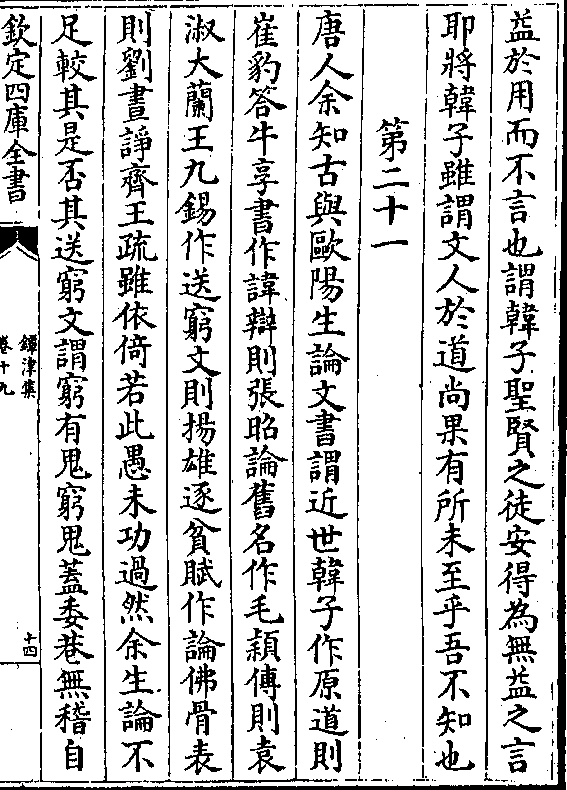 益於用而不言也謂韓子聖賢之徒安得為無益之言
耶將韓子雖謂文人於道尚果有所未至乎吾不知也
第二十一
唐人余知古與歐陽生論文書謂近世韓子作原道則
崔豹答牛享書作諱辯則張昭論舊名作毛穎傳則袁
淑大蘭王九錫作送窮文則揚雄逐貧賦作論佛骨表
則劉晝諍齊王疏雖依倚若此愚未功過然余生論不
足較其是否其送窮文謂窮有鬼窮鬼蓋委巷無稽自
欽定四庫全書
鐔津集
卷十九
十四